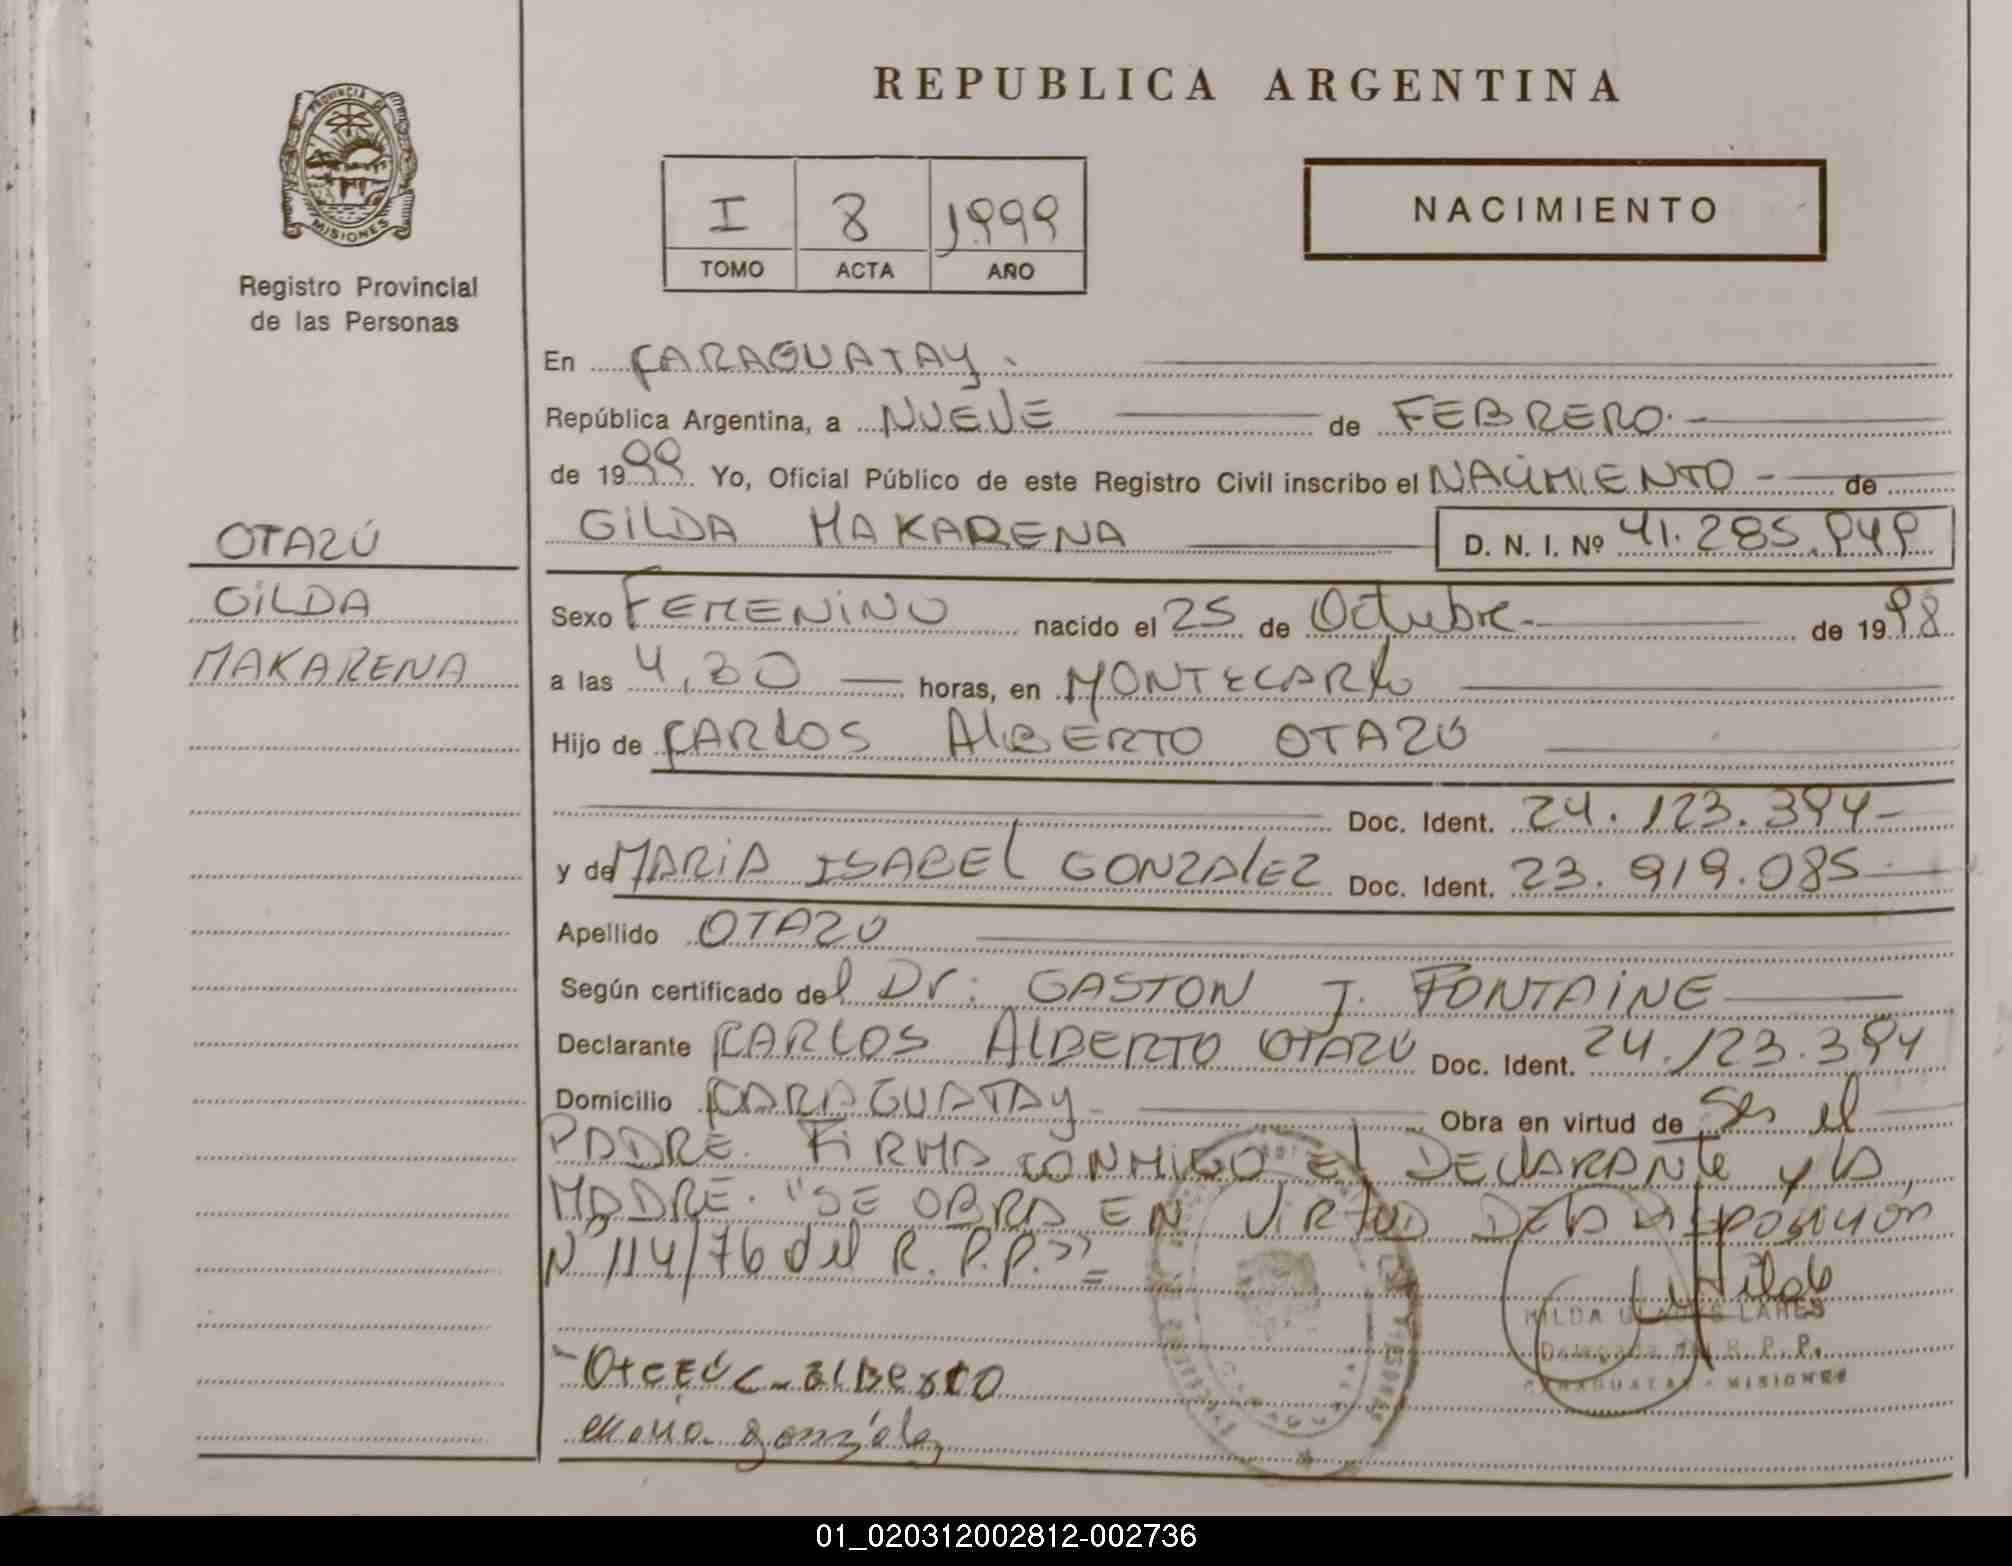 REPUBLICA ARGENTINA
PROVINCIA DE
MISIONES
Registro Provincial
de las Personas
I 8 1999
TOMO ACTA AÑO
NACIMIENTO
En CARAGUATAY.
República Argentina, a NUEVE de FEBRERO.
de 1999 Yo, Oficial Público de este Registro Civil inscribo el NACIMIENTO de
GILDA MAKARENA D. N. I. Nº 41.285.949
OTAZÚ
GILDA
MAKARENA
Sexo FEMENINO nacido el 25 de Octubre de 1998
a las 4,30 horas, en MONTECARLO
Hijo de CARLOS ALBERTO OTAZÚ
Doc. Ident. 24.123.394
y de MARIA ISABEL GONZALEZ Doc. Ident. 23.919.085
Apellido OTAZÚ
Según certificado del Dr: GASTON J. FONTAINE
Declarante CARLOS ALBERTO OTAZÚ Doc. Ident. 24.123.394
Domicilio CARAGUATAY Obra en virtud de Ser el
PADRE. FIRMA CONMIGO El DECLARANTE y LA
MADRE. "SE OBRA EN VIRTUD DE LA DISPOSICIÓN
Nº 114/76 del R. P. P."=
HILDA LARES
Delegada R. P. P.
CARAGUATAY - MISIONES
alberto
Maria gonzález
01_020312002812-002736